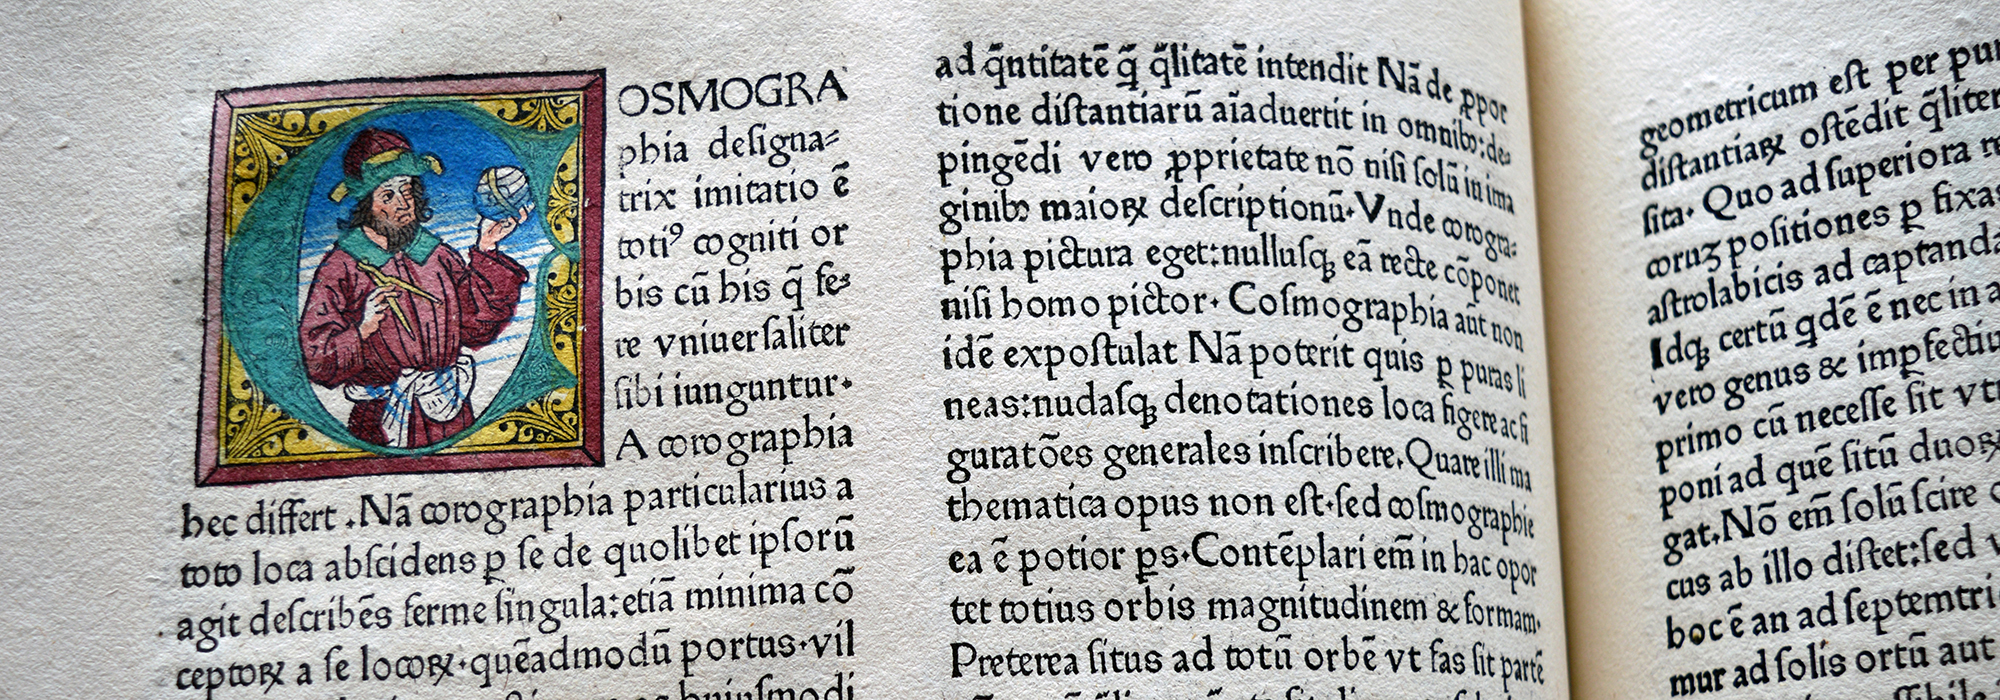 COSMOGRA
phia deſigna⸗
trix imitatio ē
toti⁹ cogniti or
bis cū his q̄ fe⸗
re vniuerſaliter
ſibi iunguntur.
A corographia
hec differt .Nā corographia particularius a
toto loca abſcidens ꝑ ſe de quolibet ipſorū
agit deſcribēs ferme ſingula:etiā minima cō
ceptoꝝ a ſe locoꝝ.quēadmodū portus.vil
huiuſmodi
ad q̄ntitatē q̄ q̄litatē intendit Nā de ꝓpor
tione diſtantiarū aīaduertit in omnibꝰ:de⸗
pingēdi vero ꝓprietate nō niſi ſolū in ima
ginibꝰ maioꝝ deſcriptionū.Vnde corogra⸗
phia pictura eget:nulluſqꝫ eā recte cōponet
niſi homo pictor. Coſmographia aut non
idē expoſtulat Nā poterit quis ꝑ puras li
neas:nudaſqꝫ denotationes loca figere ac fi
guratōes generales inſcribere.Quare illi ma
thematica opus non eſt.ſed coſmographie
ea ē potior ꝑs.Contēplari em̄ in hac opor
tet totius orbis magnitudinem & formam.
Preterea ſitus ad totū orbē vt fas ſit partē
geometricum eſt per pun
diſtantiaꝝ oſtēdit q̄liter
ſita. Quo ad ſuperiora re
coruꝫ poſitiones ꝑ fixas
aſtrolabicis ad captanda
Idqꝫ certū qdē ē nec in a
vero genus & impfectiu
primo cū neceſſe ſit vt
poni ad quē ſitū duoꝝ
gat.Nō em̄ ſolū ſcire
cus ab illo diſtet:ſed v
hoc ē an ad ſeptemtri
mur ad ſolis ortū aut